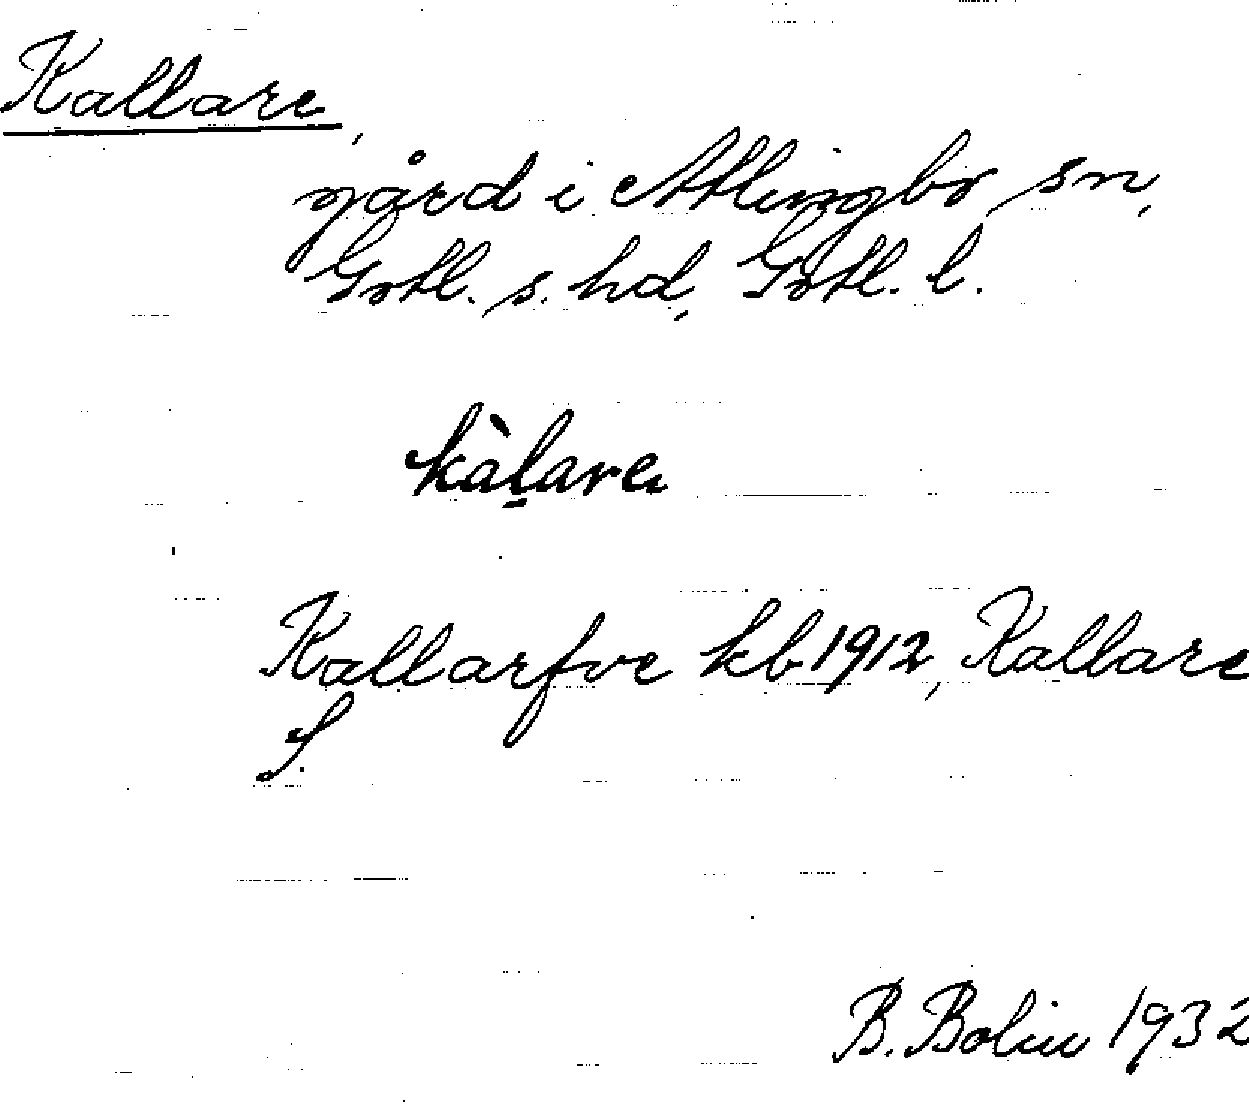 Kallare,
gård i Atlingbo sn,
Gotl. s. hd, Gotl. l.
kàl̠are
Kallarfve kb 1912, Kallare
S.
B. Bolin 1932